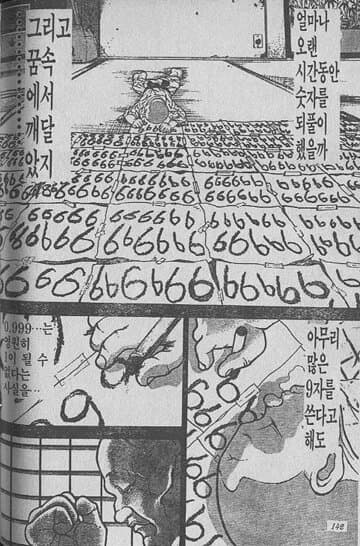 얼마나
오랜
시간동안...
숫자를
되풀이
했을까
그리고
꿈속
에서
깨달
았지
아무리
많은
9자를
쓴다고
해도
0.999…는
영원히
1이 될 수
없다는
사실을…